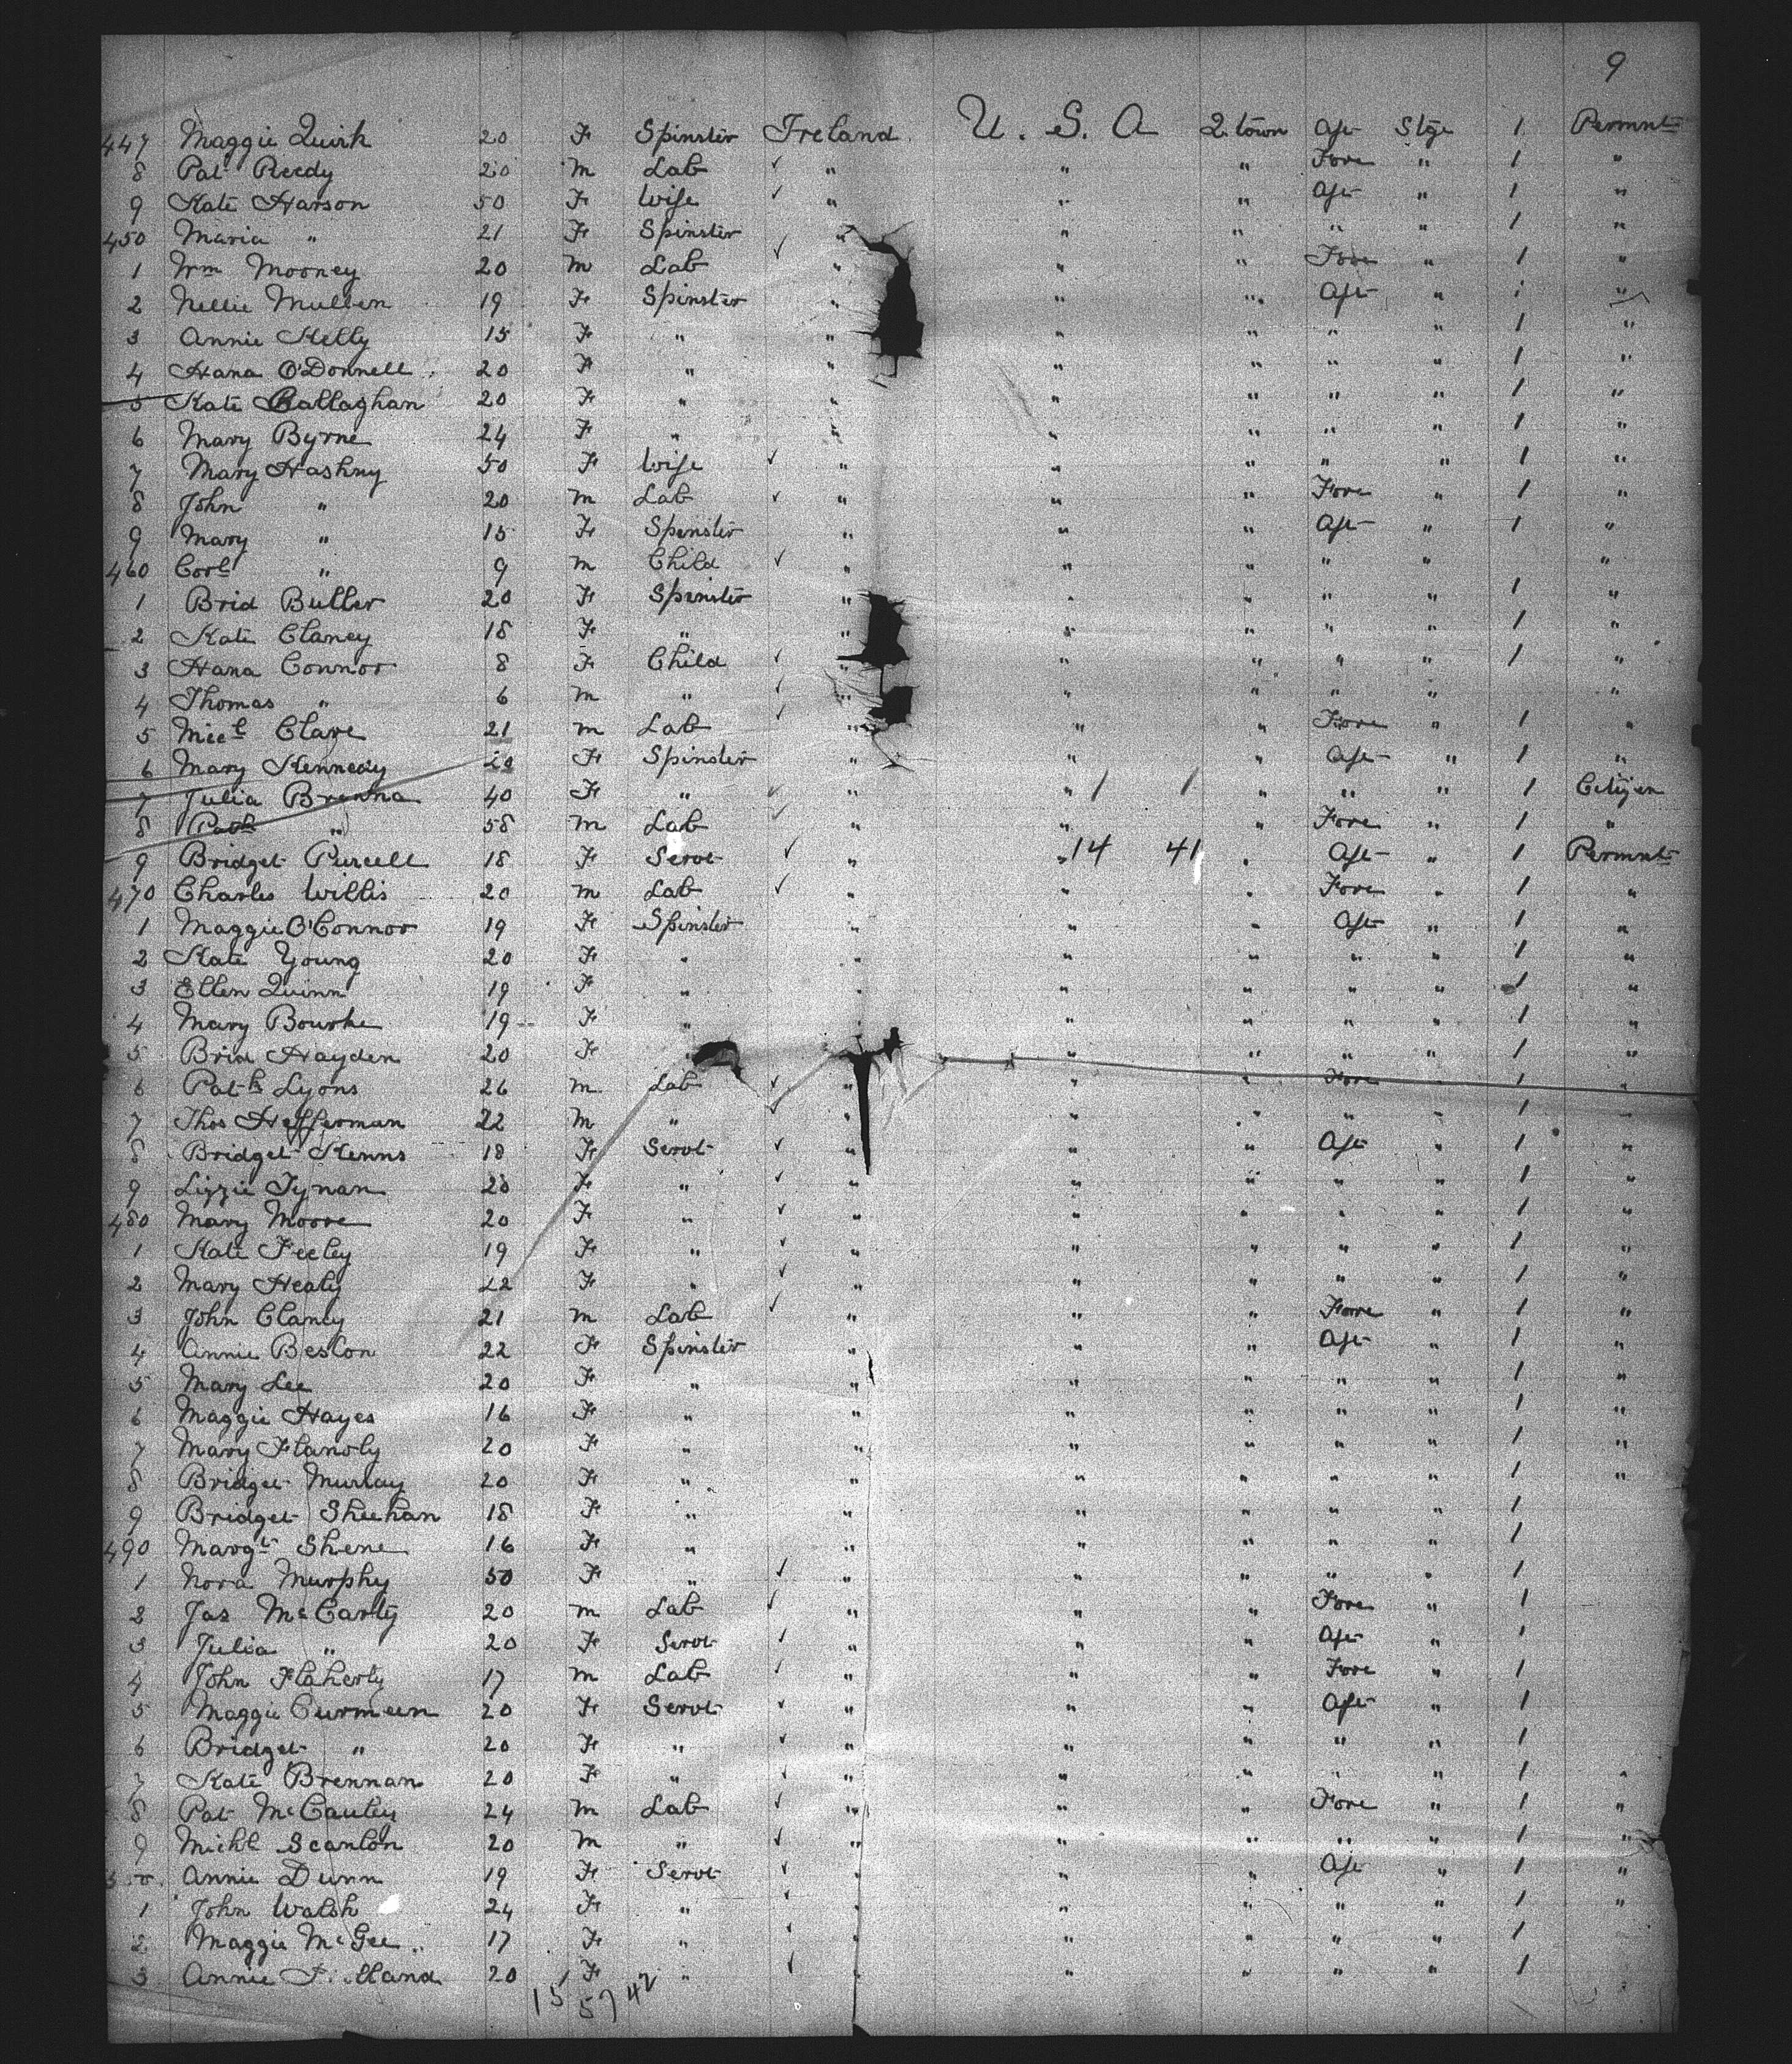 9
447 Maggie Quirk 20 F Spinster Ireland U. S. A Q. town Aft Stge 1 Permnt
8 Pat Reedy 20 m Lab ✓ " " " Fore " 1 "
9 Kate Harson 50 F Wife ✓ " " " Aft " 1 "
450 Maria " 21 F Spinster " " " " " 1 "
1 Wm Mooney 20 m Lab ✓ " " " Fore " 1 "
2 Nellie Mullen 19 F Spinster " " " Aft " 1 "
3 Annie Kelly 15 F " " " " " " 1 "
4 Hana O'Donnell 20 F " " " " " " 1 "
5 Kate Callaghan 20 F " " " " " " 1 "
6 Mary Byrne 24 F " " " " " " 1 "
7 Mary Hashny 50 F Wife ✓ " " " " " 1 "
8 John " 20 m Lab ✓ " " " Fore " 1 "
9 Mary " 15 F Spinster " " " Aft " 1 "
460 Corl " 9 m Child ✓ " " " " " "
1 Brid Butler 20 F Spinster " " " " " 1 "
2 Kate Clancy 18 F " " " " " " 1 "
3 Hana Connor 8 F Child ✓ " " " " " 1 "
4 Thomas " 6 m " ✓ " " " " " "
5 Micl Clare 21 m Lab ✓ " " " Fore " 1 "
6 Mary Kennedy F Spinster " " Aft " 1 "
7 Julia Brenna 40 F " ✓ " " 1 1 " " " 1 Citizen
8 Patk " 58 m Lab ✓ " " Fore " 1 "
9 Bridget Purcell 18 F Servt ✓ " " 14 41 " Aft " 1 Permnt
470 Charles Willis 20 m Lab ✓ " " " Fore " 1 "
1 Maggie O'Connor 19 F Spinster " " " Aft " 1 "
2 Kate Young 20 F " " " " " " 1 "
3 Ellen Quinn 19 F " " " " " " 1 "
4 Mary Bourke 19 F " " " " " " 1 "
5 Brid Hayden 20 F " " " " " 1 "
6 Patk Lyons 26 m Lab ✓ " " " Fore 1 "
7 Thos Hefferman 22 m " ✓ " " " " " 1 "
8 Bridget Kenns 18 F Servt ✓ " " " Aft " 1 "
9 Lizzie Tynan 20 F " ✓ " " " " " 1 "
480 Mary Moore 20 F " ✓ " " " " " 1 "
1 Kate Feeley 19 F " ✓ " " " " " 1 "
2 Mary Healy 22 F " ✓ " " " " " 1 "
3 John Clancy 21 m Lab ✓ " " " Fore " 1 "
4 Annie Beslon 22 F Spinster " " " Aft " 1 "
5 Mary Lee 20 F " " " " " " 1 "
6 Maggie Hayes 16 F " " " " " " 1 "
7 Mary Flanoly 20 F " " " " " " 1 "
8 Bridget Murray 20 F " " " " " " 1 "
9 Bridget Sheehan 18 F " " " " " " 1
490 Margt Shene 16 F " " " " " " 1
1 Nora Murphy 50 F " ✓ " " " " " 1
2 Jas McCarty 20 m Lab ✓ " " " Fore " 1
3 Julia " 20 F Servt ✓ " " " Aft " 1
4 John Flaherty 17 m Lab ✓ " " " Fore " 1
5 Maggie Curmeen 20 F Servt ✓ " " " Aft " 1
6 Bridget " 20 F " ✓ " " " " " 1
7 Kate Brennan 20 F " ✓ " " " " " 1 "
8 Pat McCauley 24 m Lab ✓ " " " Fore " 1 "
9 Michl Scanlon 20 m " ✓ " " " " " 1 "
Annie Dunn 19 F Servt ✓ " " " Aft " 1 "
1 John Walsh 24 F " ✓ " " " " " 1 "
2 Maggie McGee 17 F " ✓ " " " " " 1
3 Annie 20 F " ✓ " " " " " 1
15 57 42